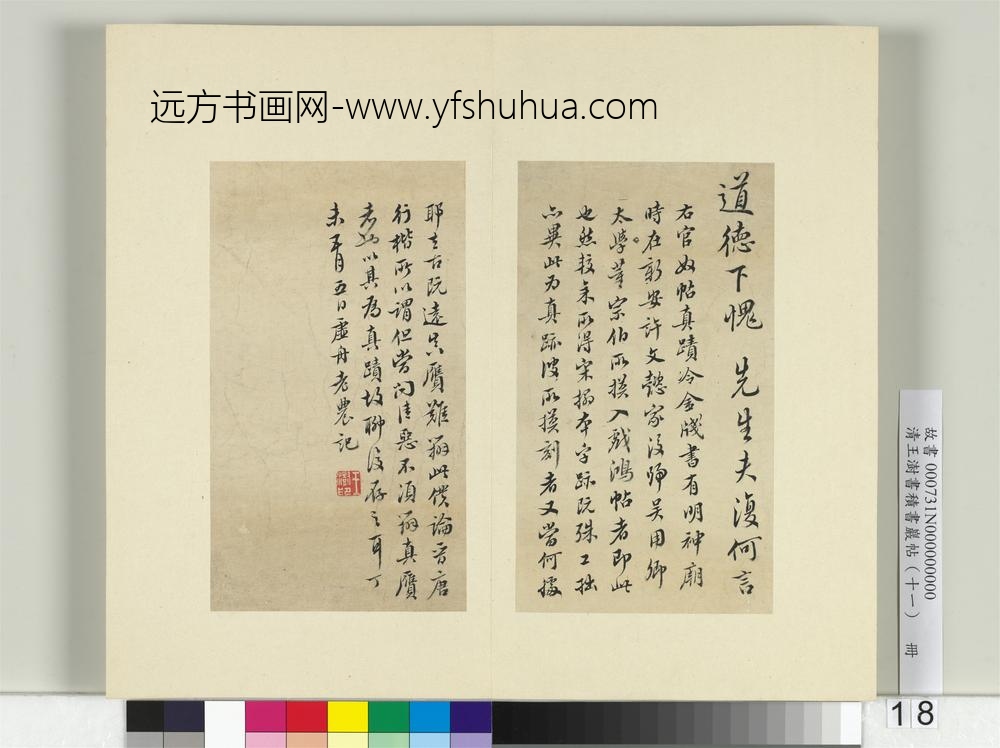 远方书画网-www.yfshuhua.com
道德下愧 先生夫復何言
右官奴帖真蹟冷金牋書有明神廟
時在新安許文懿家後歸吳用卿
太學董宗伯所摸入戲鴻帖者即此
也然較余所得宋搨本字跡既殊工拙
亦異此为真跡彼所摸刻者又當何據
耶去古既遠真贋難辨此僕論晋唐
行楷所以謂但當问佳惡不須辨真贋
者也以其為真蹟故聊復存之耳丁
未五月五日虛舟老農記
故書 000731N000000000
清王澍書積書巖帖（十一） 冊
18